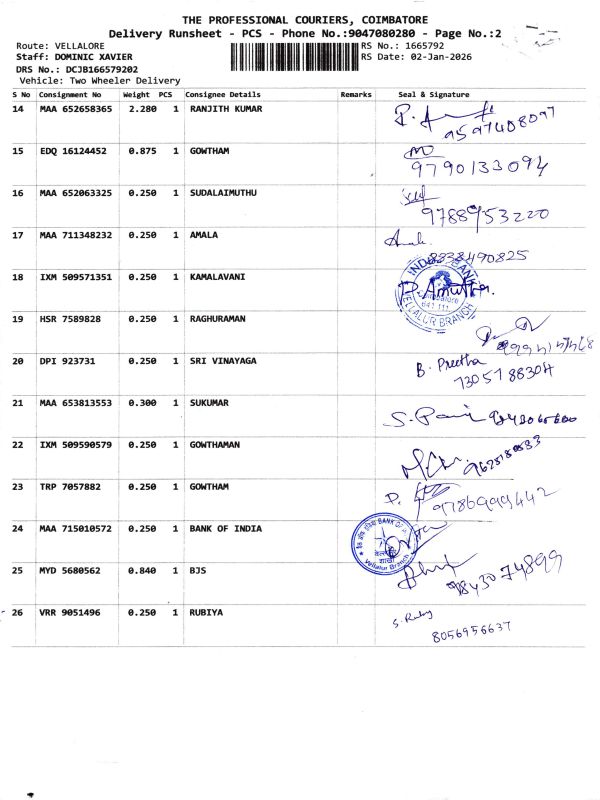 THE PROFESSIONAL COURIERS, COIMBATORE
Delivery Runsheet - PCS - Phone No.:9047080280 - Page No.:2
Route: VELLALORE RS No.: 1665792
Staff: DOMINIC XAVIER RS Date: 02-Jan-2026
DRS No.: DCJB166579202
Vehicle: Two Wheeler Delivery
S No Consignment No Weight PCS Consignee Details Remarks Seal & Signature
14 MAA 652658365 2.280 1 RANJITH KUMAR
9597408097
15 EDQ 16124452 0.875 1 GOWTHAM
9790133094
16 MAA 652063325 0.250 1 SUDALAIMUTHU
9788953220
17 MAA 711348232 0.250 1 AMALA
8838490825
18 IXM 509571351 0.250 1 KAMALAVANI
INDIAN BANK
P. Amutha.
Coimbatore
641 111
VELLALUR BRANCH
19 HSR 7589828 0.250 1 RAGHURAMAN
20 DPI 923731 0.250 1 SRI VINAYAGA B. Preetha
7305788304
21 MAA 653813553 0.300 1 SUKUMAR
22 IXM 509590579 0.250 1 GOWTHAMAN
23 TRP 7057882 0.250 1 GOWTHAM
9786999442
24 MAA 715010572 0.250 1 BANK OF INDIA
BANK OF
शाखा
Vellalur Branch
25 MYD 5680562 0.840 1 BJS
9843074899
26 VRR 9051496 0.250 1 RUBIYA S. Ruby
8056956637